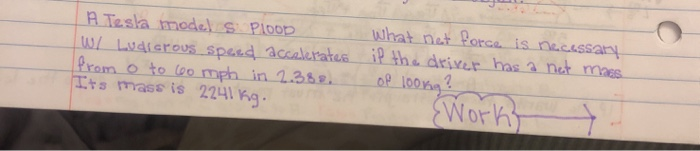 A Tesla model S P100D
W/ Ludicrous speed accelerates
from 0 to 60 mph in 2.38s.
Its mass is 2241 kg.
What net force is necessary
if the driver has a net mass
of 100kg?
{Work}